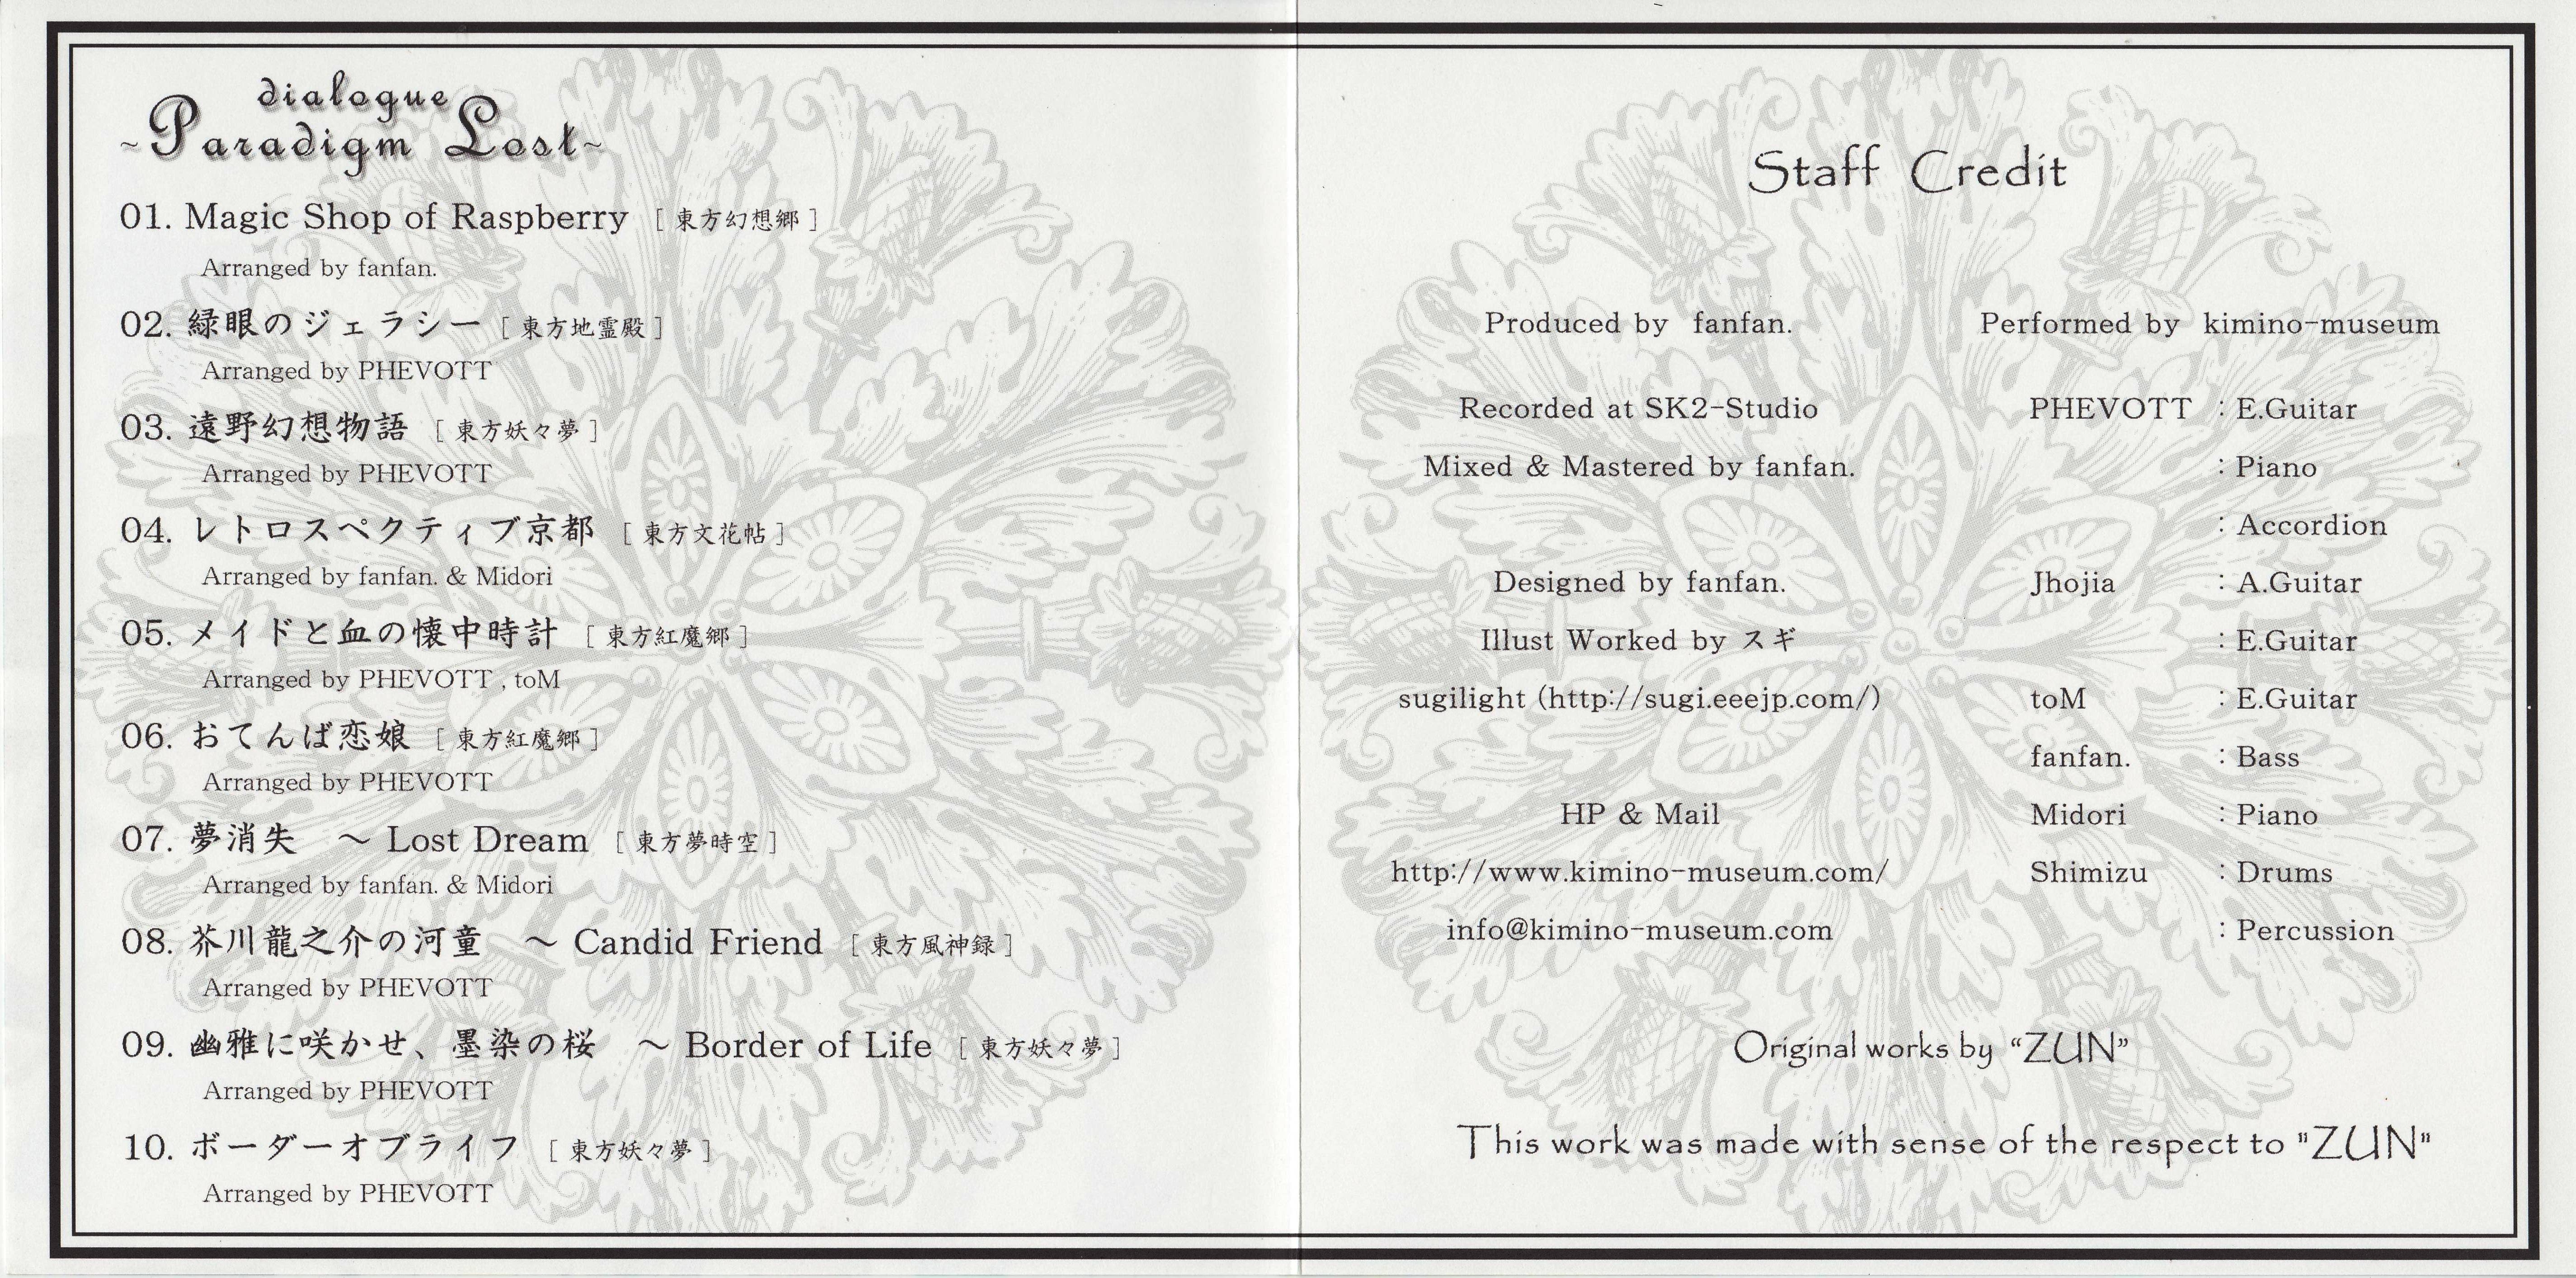 dialogue
~Paradigm Lost~
01. Magic Shop of Raspberry [ 東方幻想郷 ]
Arranged by fanfan.
02. 緑眼のジェラシー [ 東方地霊殿 ]
Arranged by PHEVOTT
03. 遠野幻想物語 [ 東方妖々夢 ]
Arranged by PHEVOTT
04. レトロスペクティブ京都 [ 東方文花帖 ]
Arranged by fanfan. & Midori
05. メイドと血の懐中時計 [ 東方紅魔郷 ]
Arranged by PHEVOTT , toM
06. おてんば恋娘 [ 東方紅魔郷 ]
Arranged by PHEVOTT
07. 夢消失　～ Lost Dream [ 東方夢時空 ]
Arranged by fanfan. & Midori
08. 芥川龍之介の河童　～ Candid Friend [ 東方風神録 ]
Arranged by PHEVOTT
09. 幽雅に咲かせ、墨染の桜　～ Border of Life [ 東方妖々夢 ]
Arranged by PHEVOTT
10. ボーダーオブライフ [ 東方妖々夢 ]
Arranged by PHEVOTT
Staff Credit
Produced by fanfan.
Recorded at SK2-Studio
Mixed & Mastered by fanfan.
Designed by fanfan.
Illust Worked by スギ
sugilight (http://sugi.eeejp.com/)
HP & Mail
http://www.kimino-museum.com/
info@kimino-museum.com
Performed by kimino-museum
PHEVOTT : E.Guitar
: Piano
: Accordion
Jhojia : A.Guitar
: E.Guitar
toM : E.Guitar
fanfan. : Bass
Midori : Piano
Shimizu : Drums
: Percussion
Original works by “ZUN”
This work was made with sense of the respect to "ZUN"